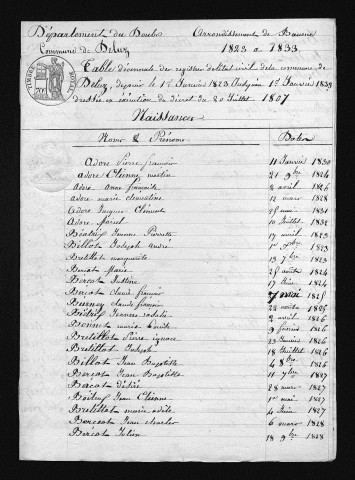 Département du Doubs Arrondissement de Baume
Commune de Deluz 1823 a 1833
Table décennale des registres de l'état civil de la commune de
Deluz, depuis le 1er Janvier 1823 Jusqu'au 1er Janvier 1833
dressée en exécution du décret du 20 Juillet 1807
Naissances
Noms & Prénoms Dates
Adore Pierre françois 11 Janvier 1830
adore Etienne martin 21 9bre 1824
Adore Anne françoise 2 avril 1826
adore marie clementine 12 mars 1828
Adore Jacques Clément 1831
Adore 10 Juillet
Béatrix Jeanne Pierrette 17 avril 1823
Billot Joseph andré 1er 1823
Bretillot marguerite 13 7bre 1823
Bercot Marie 25 1824
Bercot Justine 17 1824
Bacot claude françois 1825
Burney claude françois 22 1825
Jeannes 2 avril 1826
Bonnet marie 9 février 1826
Bretillot Pierre ignace 23 Janvier 1826
Bretillot Joseph 18 Juillet 1826
Billot Jean Baptiste 4 8bre 1826
Bercot Jean Baptiste 11 1827
Bacot désiré 28 mars 1827
Jean Etienne 1er mai 1827
Bretillot marie adèle 4 Juin 1827
Bercot Jean charles 6 mars 1828
Bercot Julien 18 9bre 1828